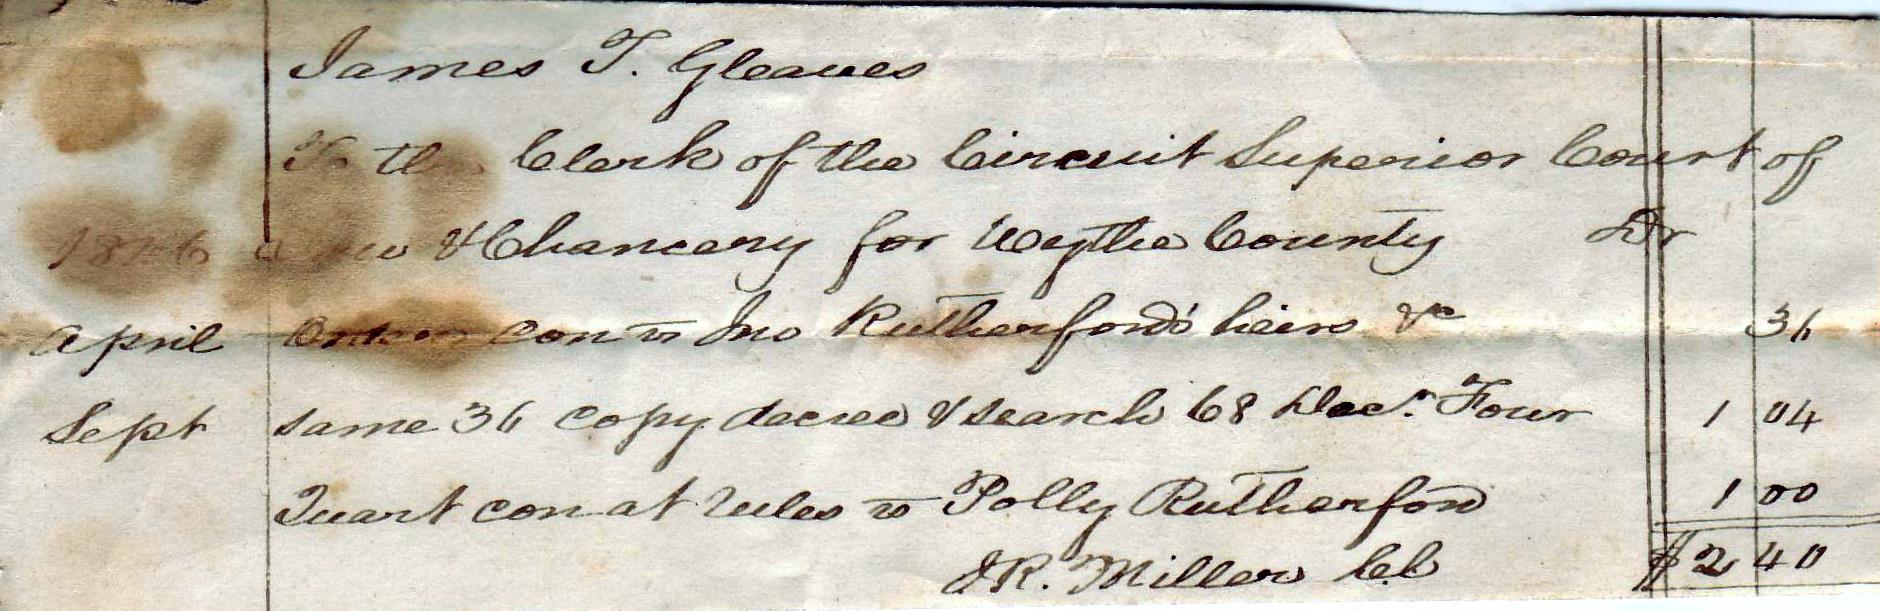 James T. Gleaves
To the Clerk of the Circuit Superior Court of
1846 Law & Chancery for Wythe County Dr
April Order con vs Jno Rutherford's heirs &c 36
Sept same 36 copy decree & search 68 Decr. Four 1 04
Quart con at rules vs Polly Rutherford 1 00
JR. Miller C.C $2 40